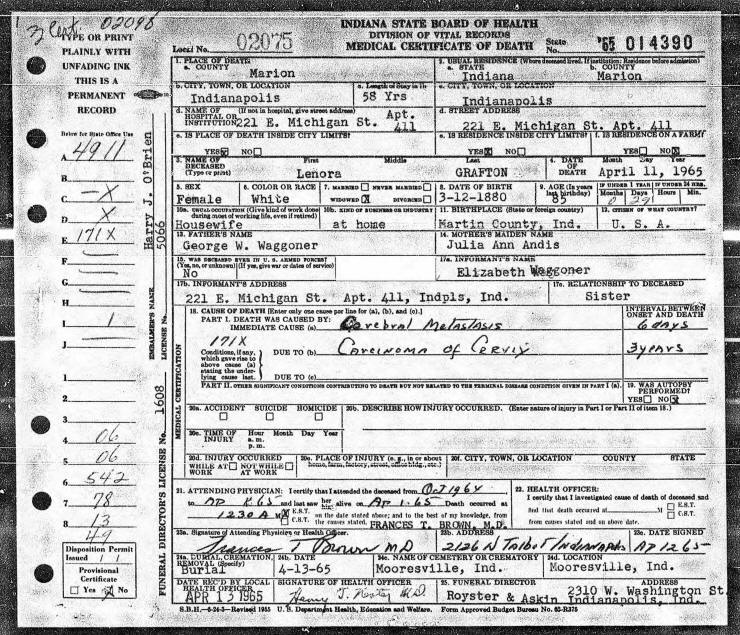 3 Cert. 02098
TYPE OR PRINT
PLAINLY WITH
UNFADING INK
THIS IS A
PERMANENT
RECORD
Below for State Office Use
A 4911
B
C -X
D X
E 171X
F
G
H
I 1
J
1
2
3
4 06
5 06
6 542
7 78
8 13
49
Disposition Permit
Issued
Provisional
Certificate
Yes No
EMBALMER'S NAME Harry J. O'Brien LICENSE No. 5066
FUNERAL DIRECTOR'S LICENSE No. 1608
INDIANA STATE BOARD OF HEALTH
DIVISION OF VITAL RECORDS
MEDICAL CERTIFICATE OF DEATH
Local No. 02075
State No. '65 014390
1. PLACE OF DEATH
a. COUNTY
Marion
2. USUAL RESIDENCE (Where deceased lived. If institution: Residence before admission)
a. STATE b. COUNTY
Indiana Marion
b. CITY, TOWN, OR LOCATION
Indianapolis
c. Length of Stay in 1b
58 Yrs
c. CITY, TOWN, OR LOCATION
Indianapolis
d. NAME OF (If not in hospital, give street address)
HOSPITAL OR
INSTITUTION 221 E. Michigan St. Apt. 411
d. STREET ADDRESS
221 E. Michigan St. Apt. 411
e. IS PLACE OF DEATH INSIDE CITY LIMITS?
YES X NO
e. IS RESIDENCE INSIDE CITY LIMITS?
YES X NO
f. IS RESIDENCE ON A FARM?
YES NO X
3. NAME OF
DECEASED
(Type or print)
First Middle Last
Lenora GRAFTON
4. DATE
OF
DEATH
Month Day Year
April 11, 1965
5. SEX
Female
6. COLOR OR RACE
White
7. MARRIED NEVER MARRIED
WIDOWED X DIVORCED
8. DATE OF BIRTH
3-12-1880
9. AGE (In years
last birthday)
85
IF UNDER 1 YEAR IF UNDER 24 HRS.
Months Days Hours Min.
0 29
10a. USUAL OCCUPATION (Give kind of work done
during most of working life, even if retired)
Housewife
10b. KIND OF BUSINESS OR INDUSTRY
at home
11. BIRTHPLACE (State or foreign country)
Martin County, Ind.
12. CITIZEN OF WHAT COUNTRY?
U. S. A.
13. FATHER'S NAME
George W. Waggoner
14. MOTHER'S MAIDEN NAME
Julia Ann Andis
15. WAS DECEASED EVER IN U. S. ARMED FORCES?
(Yes, no, or unknown) (If yes, give war or dates of service)
No
17a. INFORMANT'S NAME
Elizabeth Waggoner
17b. INFORMANT'S ADDRESS
221 E. Michigan St. Apt. 411, Indpls, Ind.
17c. RELATIONSHIP TO DECEASED
Sister
MEDICAL CERTIFICATION
18. CAUSE OF DEATH [Enter only one cause per line for (a), (b), and (c).]
PART I. DEATH WAS CAUSED BY:
IMMEDIATE CAUSE (a) Cerebral Metastasis
INTERVAL BETWEEN
ONSET AND DEATH
6 days
171X
Conditions, if any,
which gave rise to
above cause (a)
stating the under-
lying cause last.
DUE TO (b) Carcinoma of Cervix
3 years
DUE TO (c)
PART II. OTHER SIGNIFICANT CONDITIONS CONTRIBUTING TO DEATH BUT NOT RELATED TO THE TERMINAL DISEASE CONDITION GIVEN IN PART I (a).
19. WAS AUTOPSY
PERFORMED?
YES NO X
20a. ACCIDENT SUICIDE HOMICIDE
20b. DESCRIBE HOW INJURY OCCURRED. (Enter nature of injury in Part I or Part II of item 18.)
20c. TIME OF
INJURY
Hour Month Day Year
a. m.
p. m.
20d. INJURY OCCURRED
WHILE AT NOT WHILE
WORK AT WORK
20e. PLACE OF INJURY (e. g., in or about
home, farm, factory, street, office bldg., etc.)
20f. CITY, TOWN, OR LOCATION COUNTY STATE
21. ATTENDING PHYSICIAN: I certify that I attended the deceased from Oct 1964
and last saw her alive on Ap 1-65 Death occurred at
1230 A M E.S.T. C.S.T. on the date stated above; and to the best of my knowledge, from
the causes stated. FRANCES T. BROWN, M.D.
22. HEALTH OFFICER:
I certify that I investigated cause of death of deceased and
find that death occurred at M E.S.T. C.S.T.
from causes stated and on above date.
23a. Signature of Attending Physician or Health Officer.
Frances Brown MD
23b. ADDRESS
2126 N Talbot Indianapolis
23c. DATE SIGNED
Ap 12 65
24a. BURIAL, CREMATION,
REMOVAL (Specify)
Burial
24b. DATE
4-13-65
24c. NAME OF CEMETERY OR CREMATORY
Mooresville, Ind.
24d. LOCATION
Mooresville, Ind.
DATE REC'D BY LOCAL
HEALTH OFFICER
APR 13 1965
SIGNATURE OF HEALTH OFFICER
Henry M.D.
25. FUNERAL DIRECTOR ADDRESS
Royster & Askin 2310 W. Washington St.
Indianapolis, Ind.
S.B.H.—6-24-3—Revised 1955 U. S. Department Health, Education and Welfare. Form Approved Budget Bureau No. 68-R375